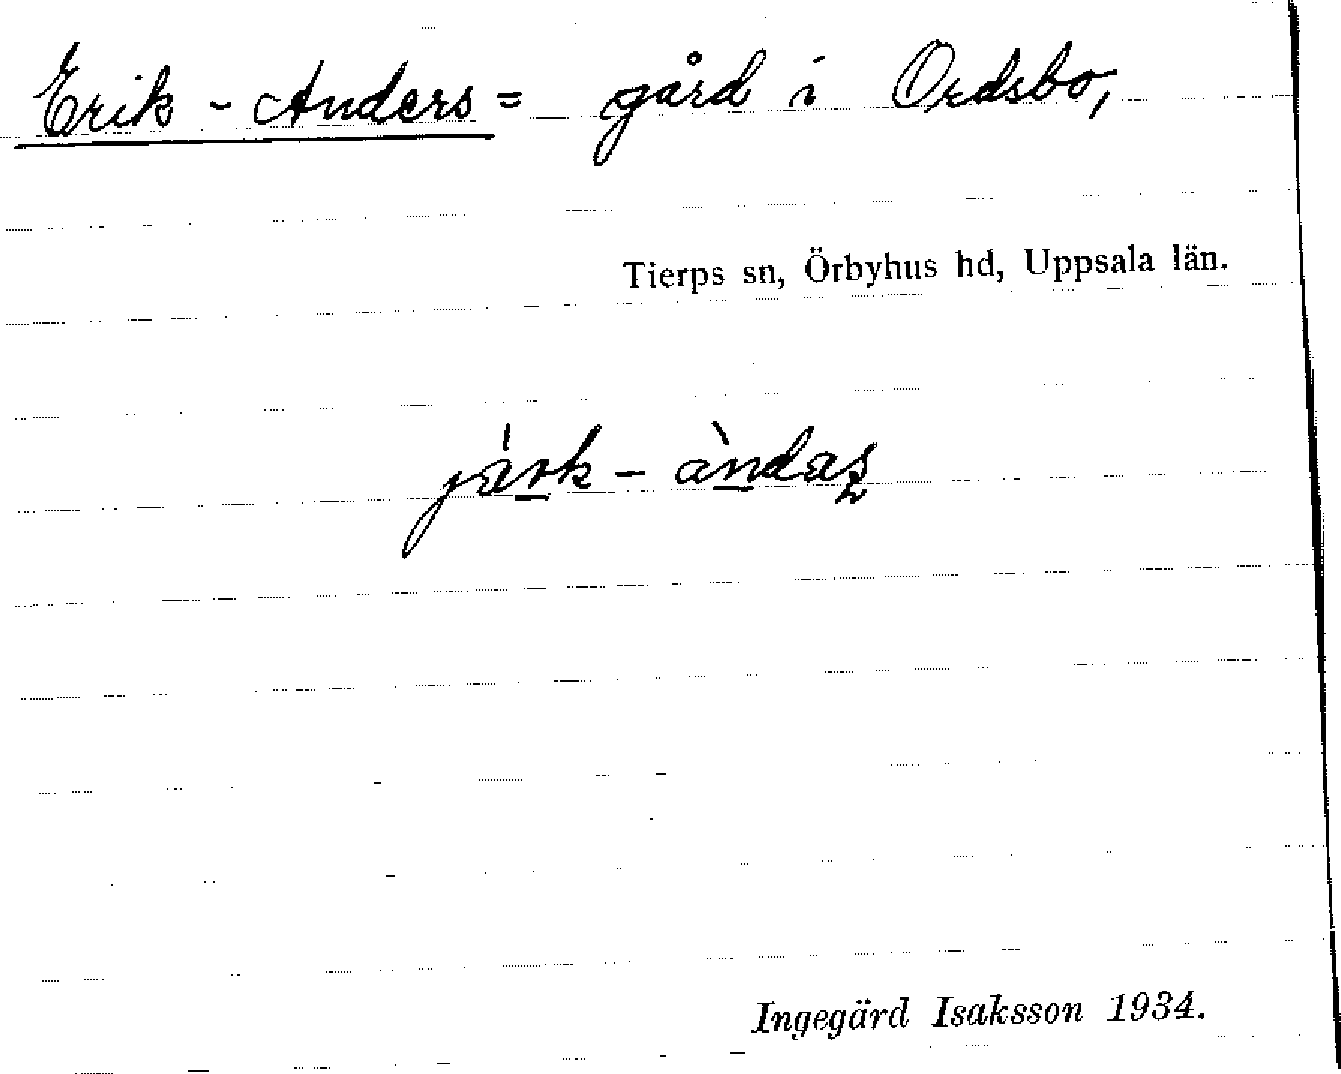 Erik - Anders = gård i Ordsbo,
Tierps sn, Örbyhus hd, Uppsala län.
jàrk - àndaʂ
Ingegärd Isaksson 1934.